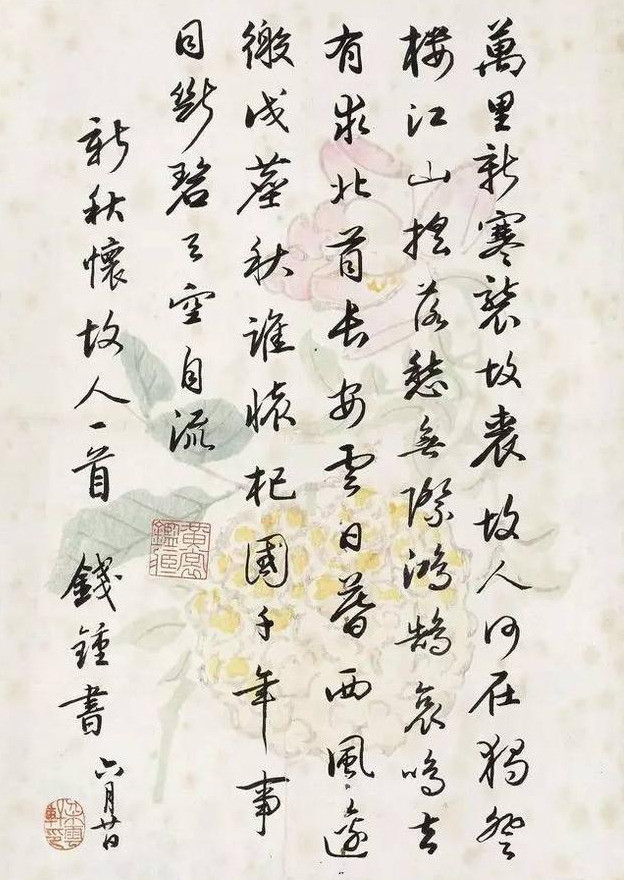 萬里新寒襲故裘故人何在獨登
樓江山搖落愁無際鴻鵠哀鳴去
有求北首長安雲日暮西風邊
徼戍塵秋誰懷杞國千年事
目斷碧天空自流
新秋懷故人一首 錢鍾書 六月廿日
黃裳鑑藏